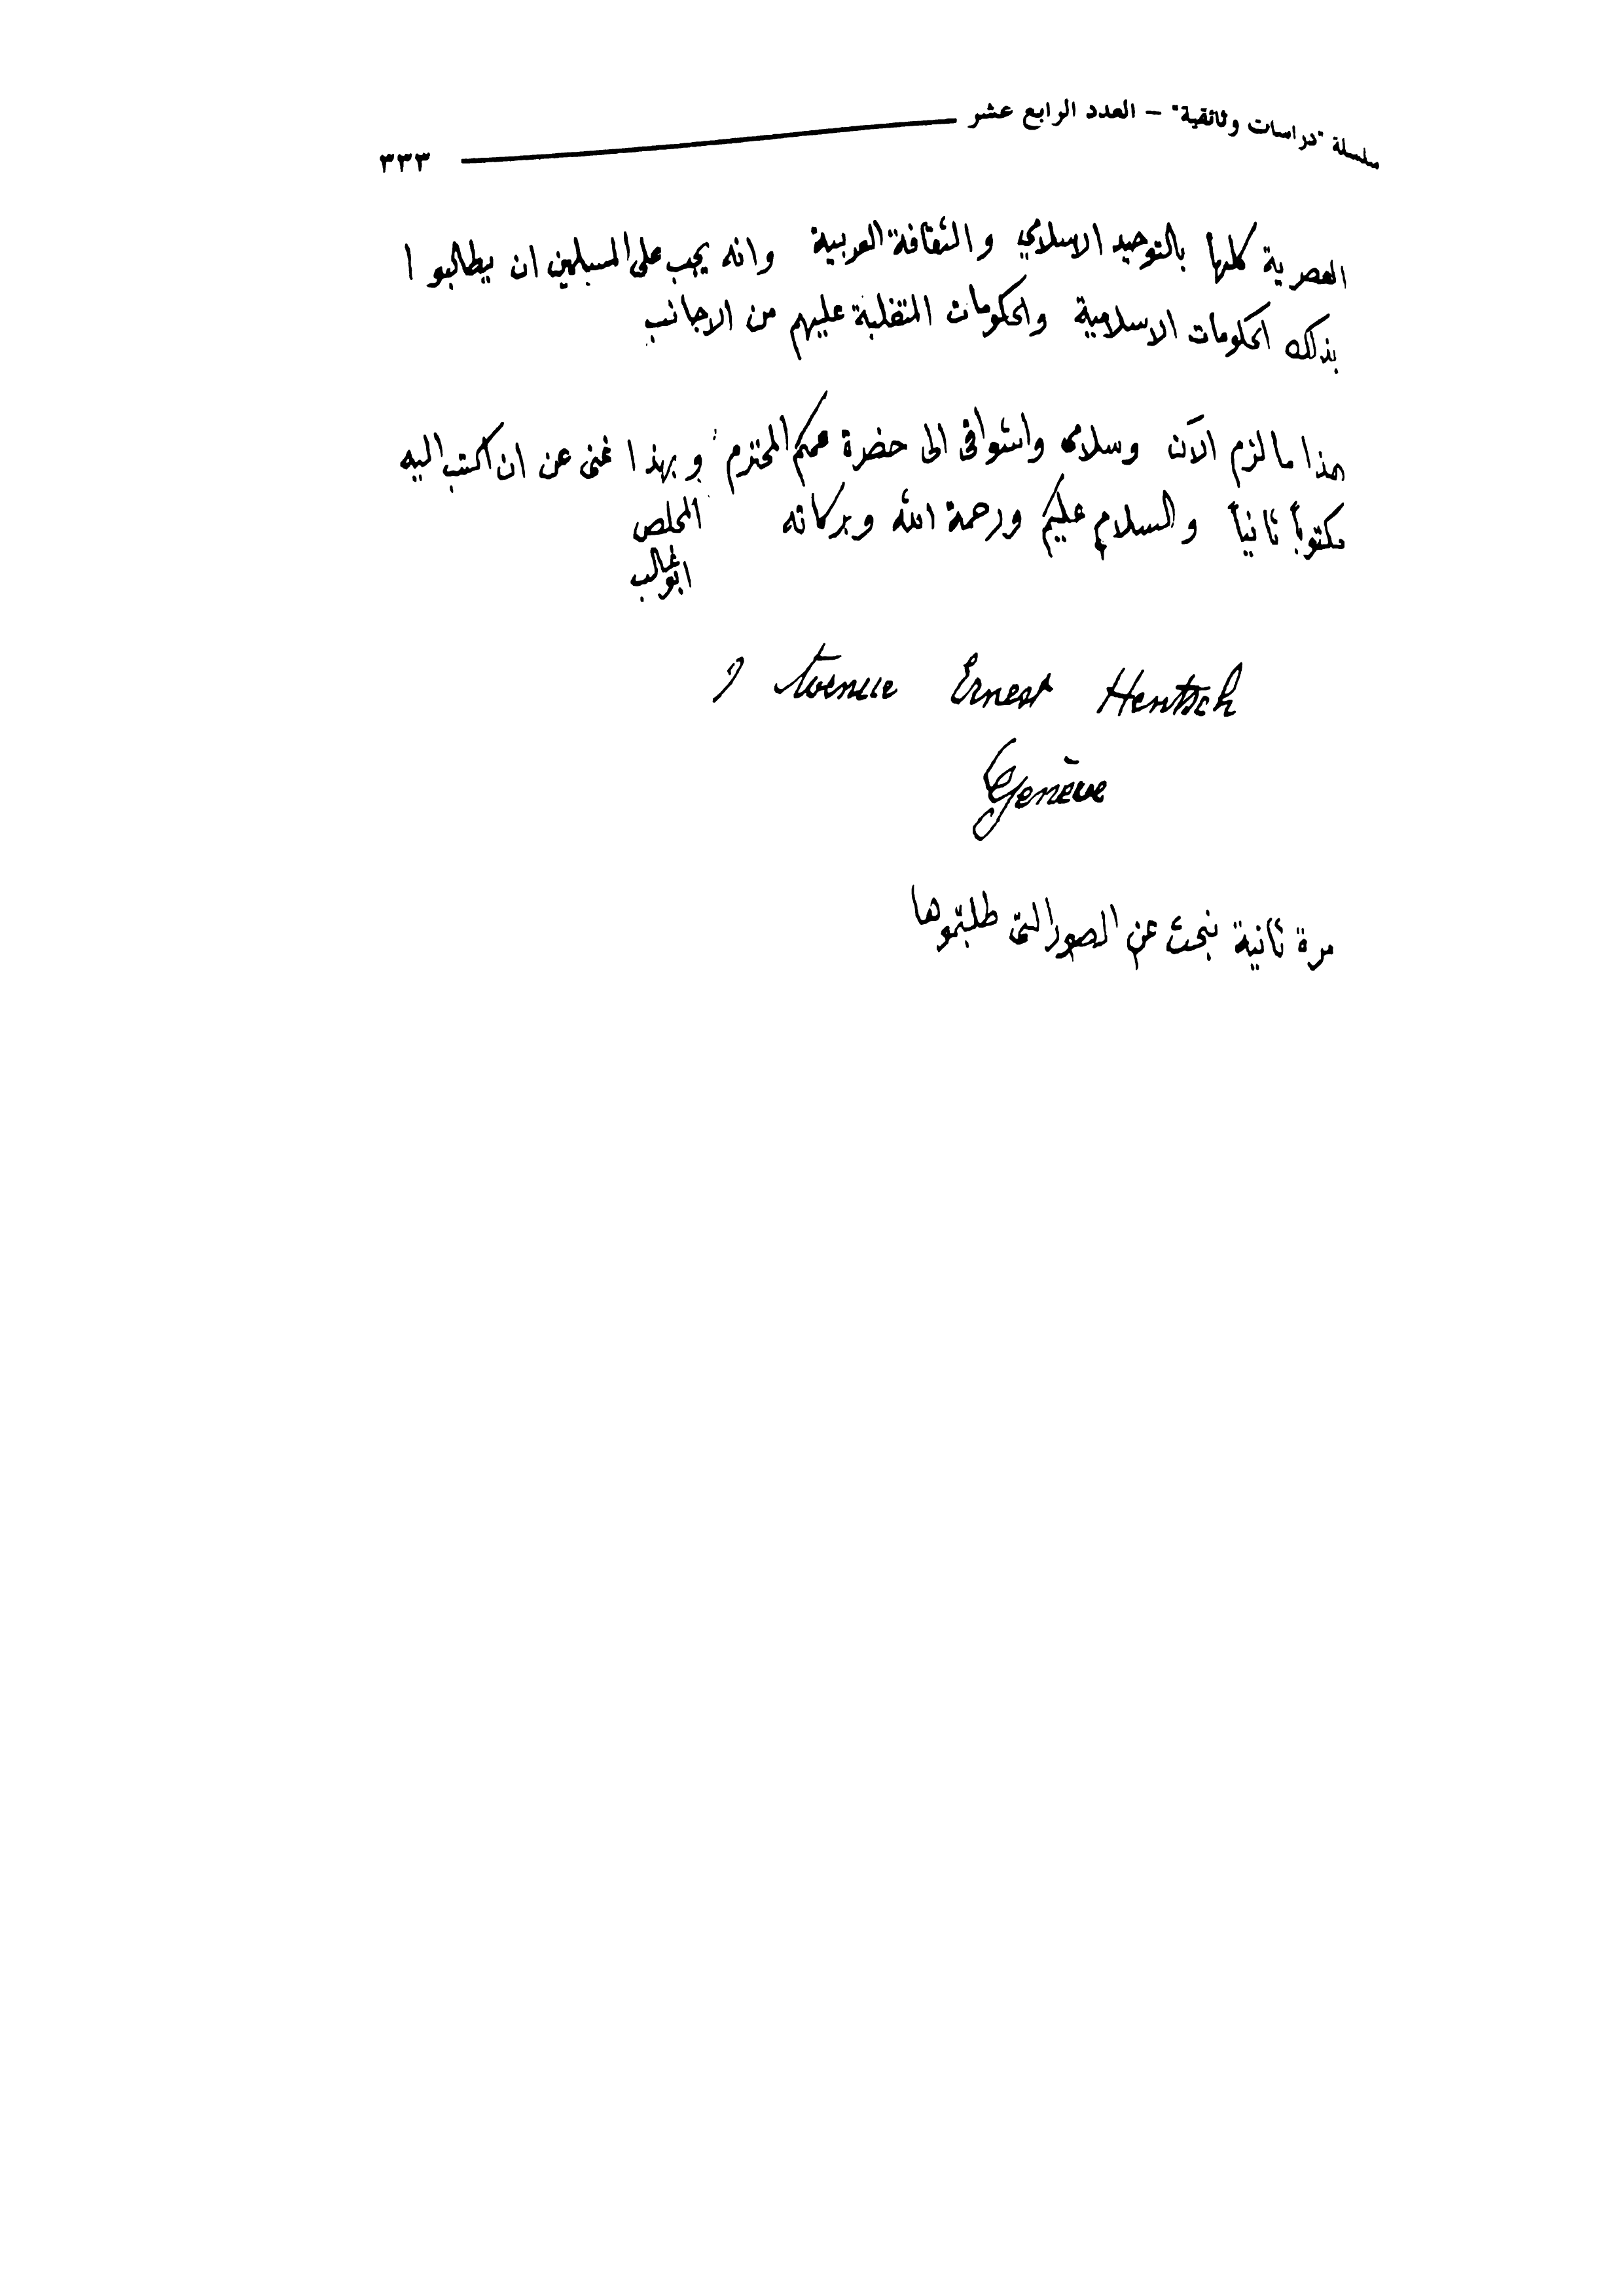 سلسلة "دراسات وثائقية" – العدد الرابع عشر ٣٣٣
العصرية كلها بالتوحيد الاسلامي والثقافة العربية وانه يجب على المسلمين ان يطالبوا
بذلك الحكومات الاسلامية والحكومات المتغلبة عليهم من الاجانب
هذا ما لزم الآن وسلامى واشواقى الى حضرة عمكم المحترم وبهذا غنى عن ان اكتب اليه
مكتوباً ثانياً والسلام عليكم ورحمة الله وبركاته المخلص
ابو غالب
Avenue Ernest Hentsch
Genève
مرة ثانية نبحث عن الصور التى طلبتموها